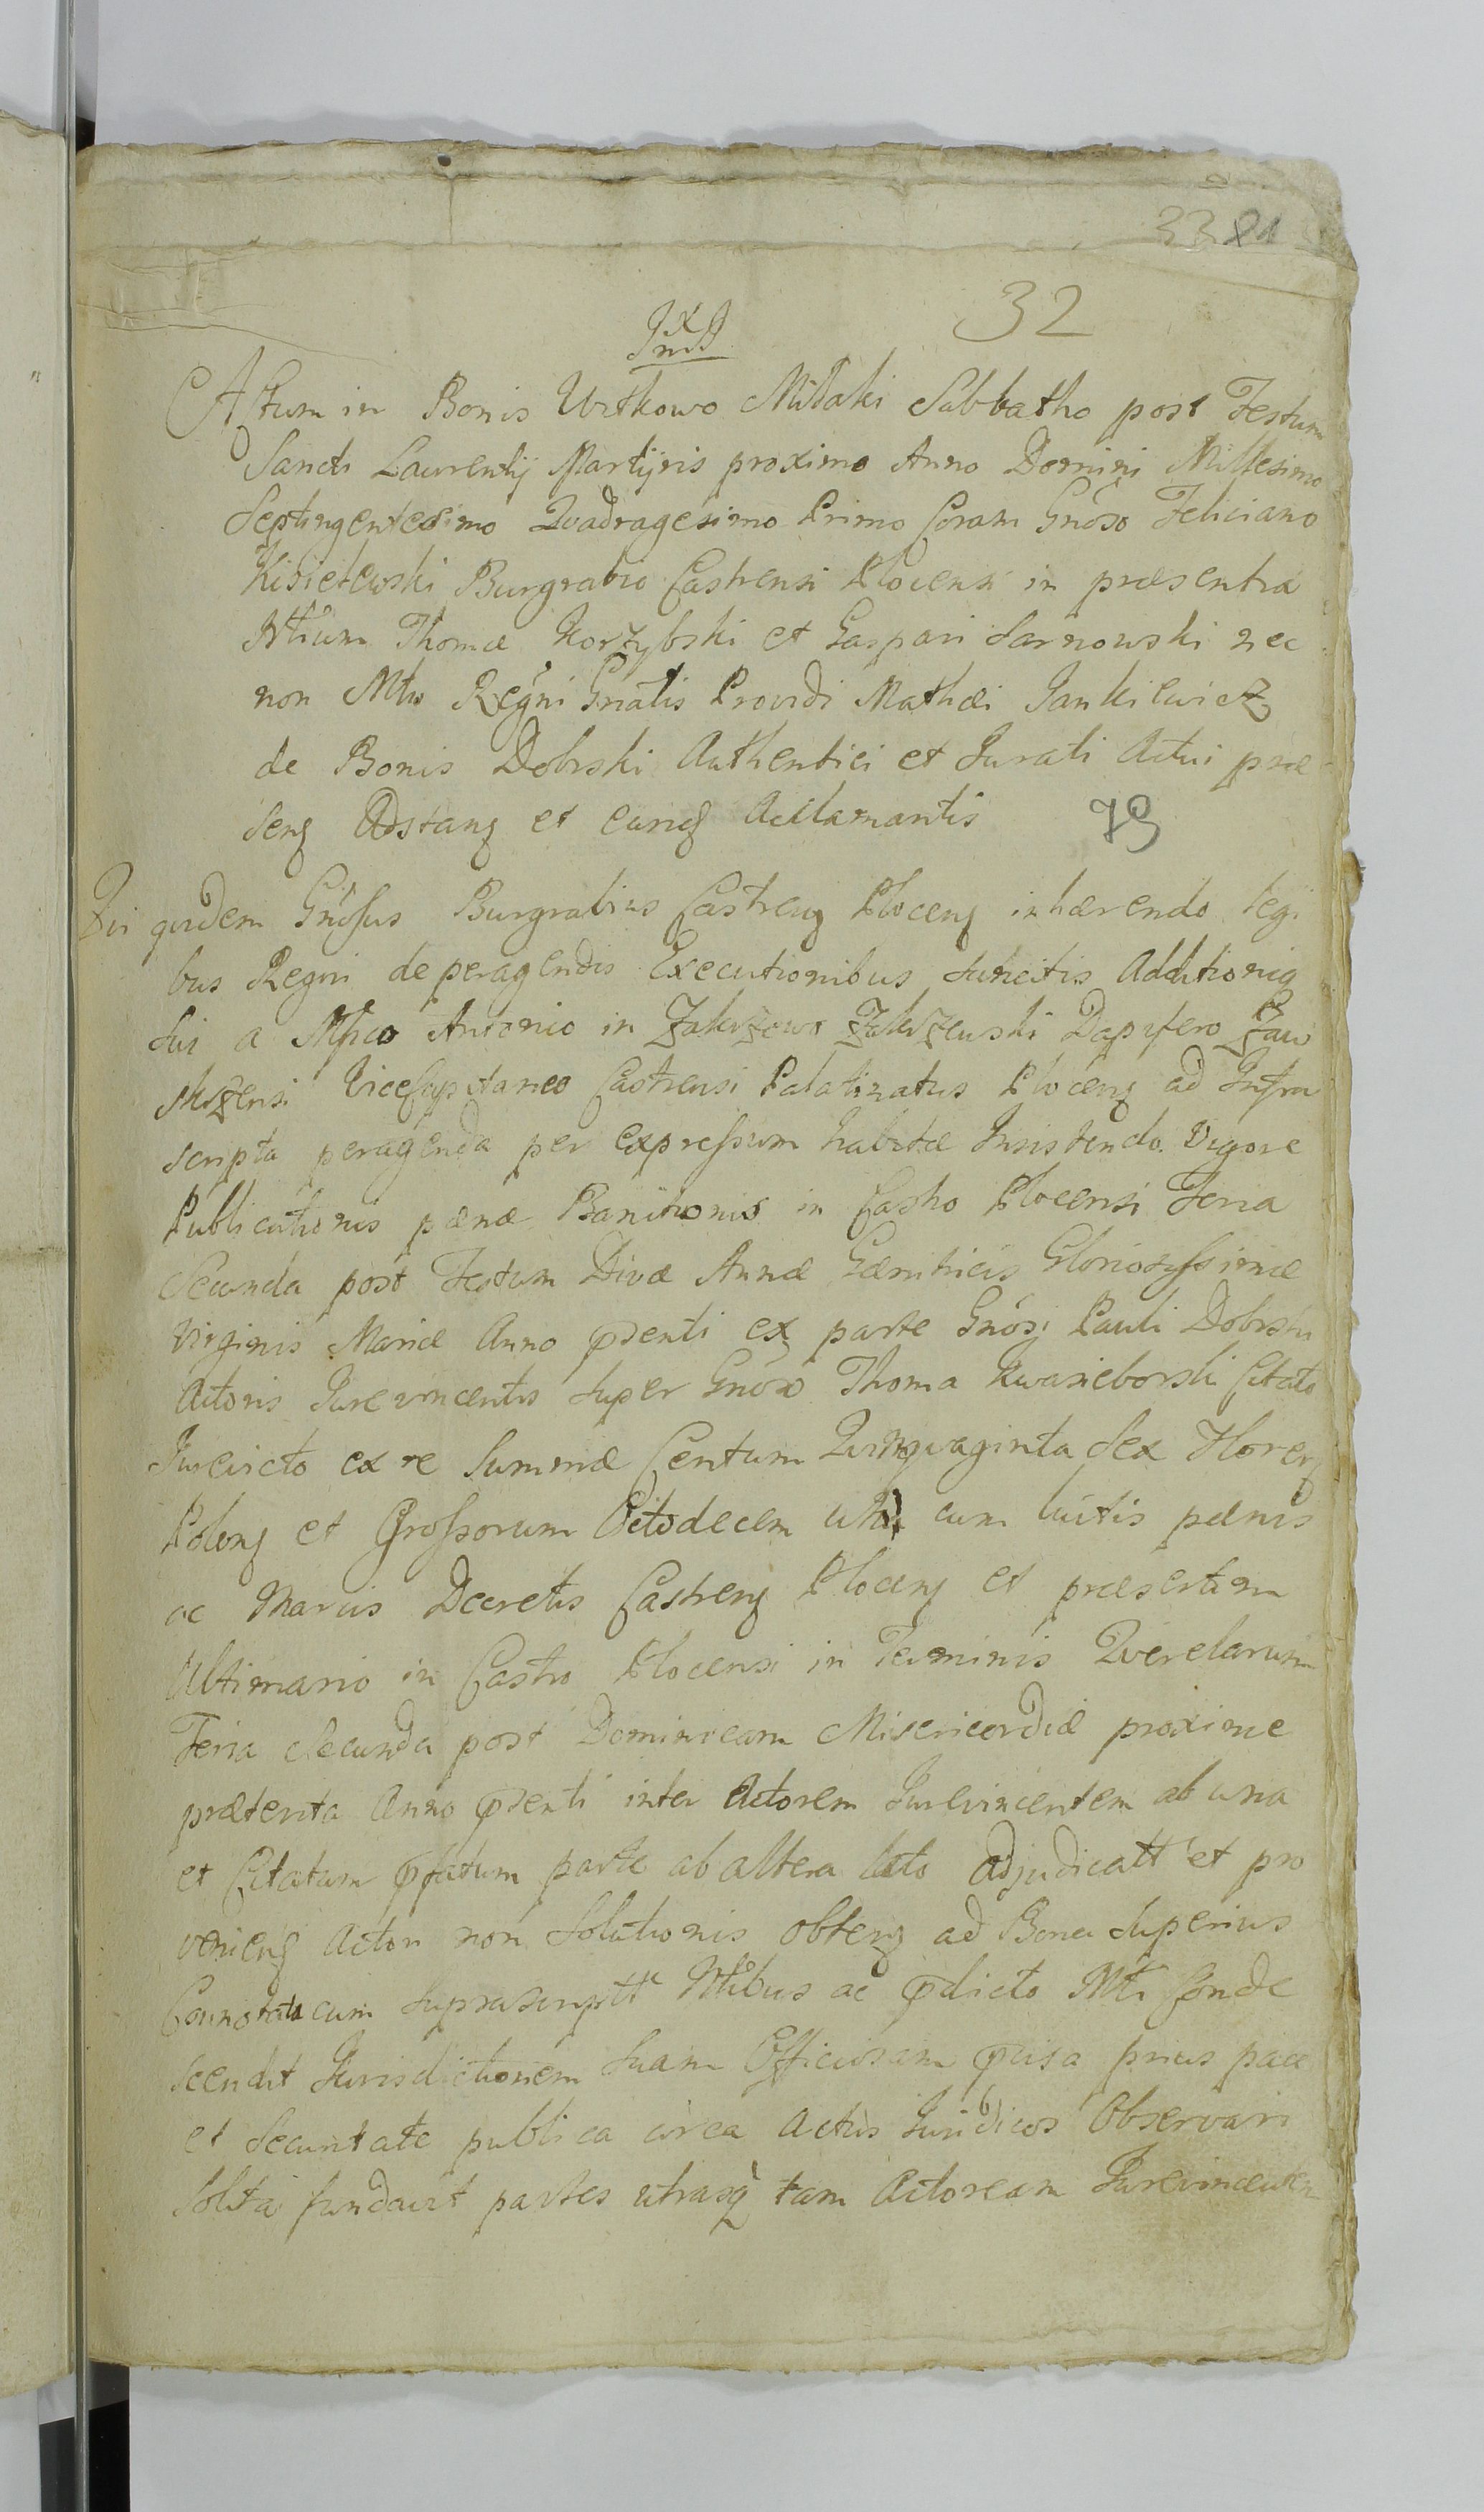 33 81
32
Actum in Bonis Witkowo Milaki Sabbatho post Festum
Sancti Laurentij Martijris proximo Anno Domini Millesimo
Septingentesimo Quadragesimo Primo Coram Gnoso Feliciano
Kisielewski Burgrabio Castrensi Plocensi in præsentia
Nbilium Thomæ Korzybski et Gaspari Sarnowski nec
non Mtis Regni Gnalis Providi Mathæi Jankiewicz
de Bonis Dobrski Authentici et Jurati Actui præ
sens Adstans et eundq Acclamantis 79
Qui quidem Gnosus Burgrabius Castrens Plocens inhærendo legi
bus Regni de peragendis Executionibus Sancitis Additioniq
Sui a Mfico Antonio in Zakrzewo Zakrzewski Dapifero Zaw
skrzensi ViceCapitaneo Castrensi Palatinatus Plocens ad Infra
scripta peragenda per expressum habitæ Insistendo Vigore
Publicationis pænæ Banitionis in Castro Plocensi Feria
Secunda post Festum Divæ Annæ Gænitricis Gloriosyssimæ
Virginis Mariæ Anno psenti ex parte Gnosi Pauli Dobrski
Actoris Jurevincentis super Gnoso Thoma Kwasieborski Citato
Jurevicto ex re Summæ Centum Quinquaginta Sex Floren
Polons et Grossorum Octodecem cum luitis pænis
ac Marcis Decretis Castrens Plocens et præsertim
Ultimario in Castro Plocensi in Terminis Querelarum
Feria Secunda post Dominicam Misericordiæ proxime
præterita Anno psenti inter Actorem Jurevincentem ab una
et Citatum pfatum parte ab altera lato adjudicatt et pro
veniens Actori non Solutionis obtens ad Bona Superius
Connotata cum suprascriptt Nbilibus ac pdicto Mtri Conde
scendit Jurisdictionem Suam Officiosam pvisa prius pace
et Securitate publica circa Actus Juridicos Observari
Solita fundavit partes utrasq tam Actoream Jurevincen